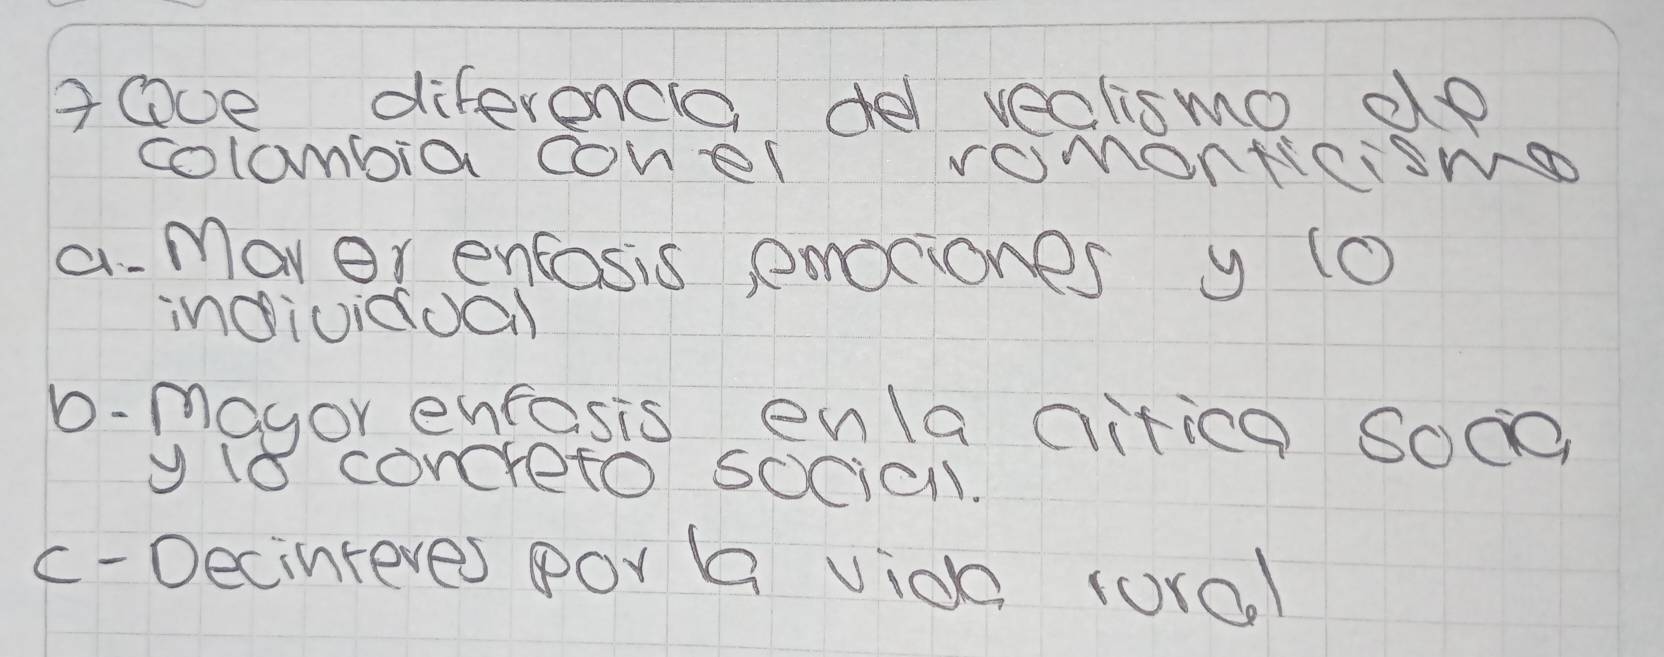 7 Que diferencia del realismo de
colambia con el romanticismo
a- Mayor enfasis, emociones y lo
individual
b- Mayor enfasis en la critica socia
y lo concreto social.
c- Decinteres por la vida rural